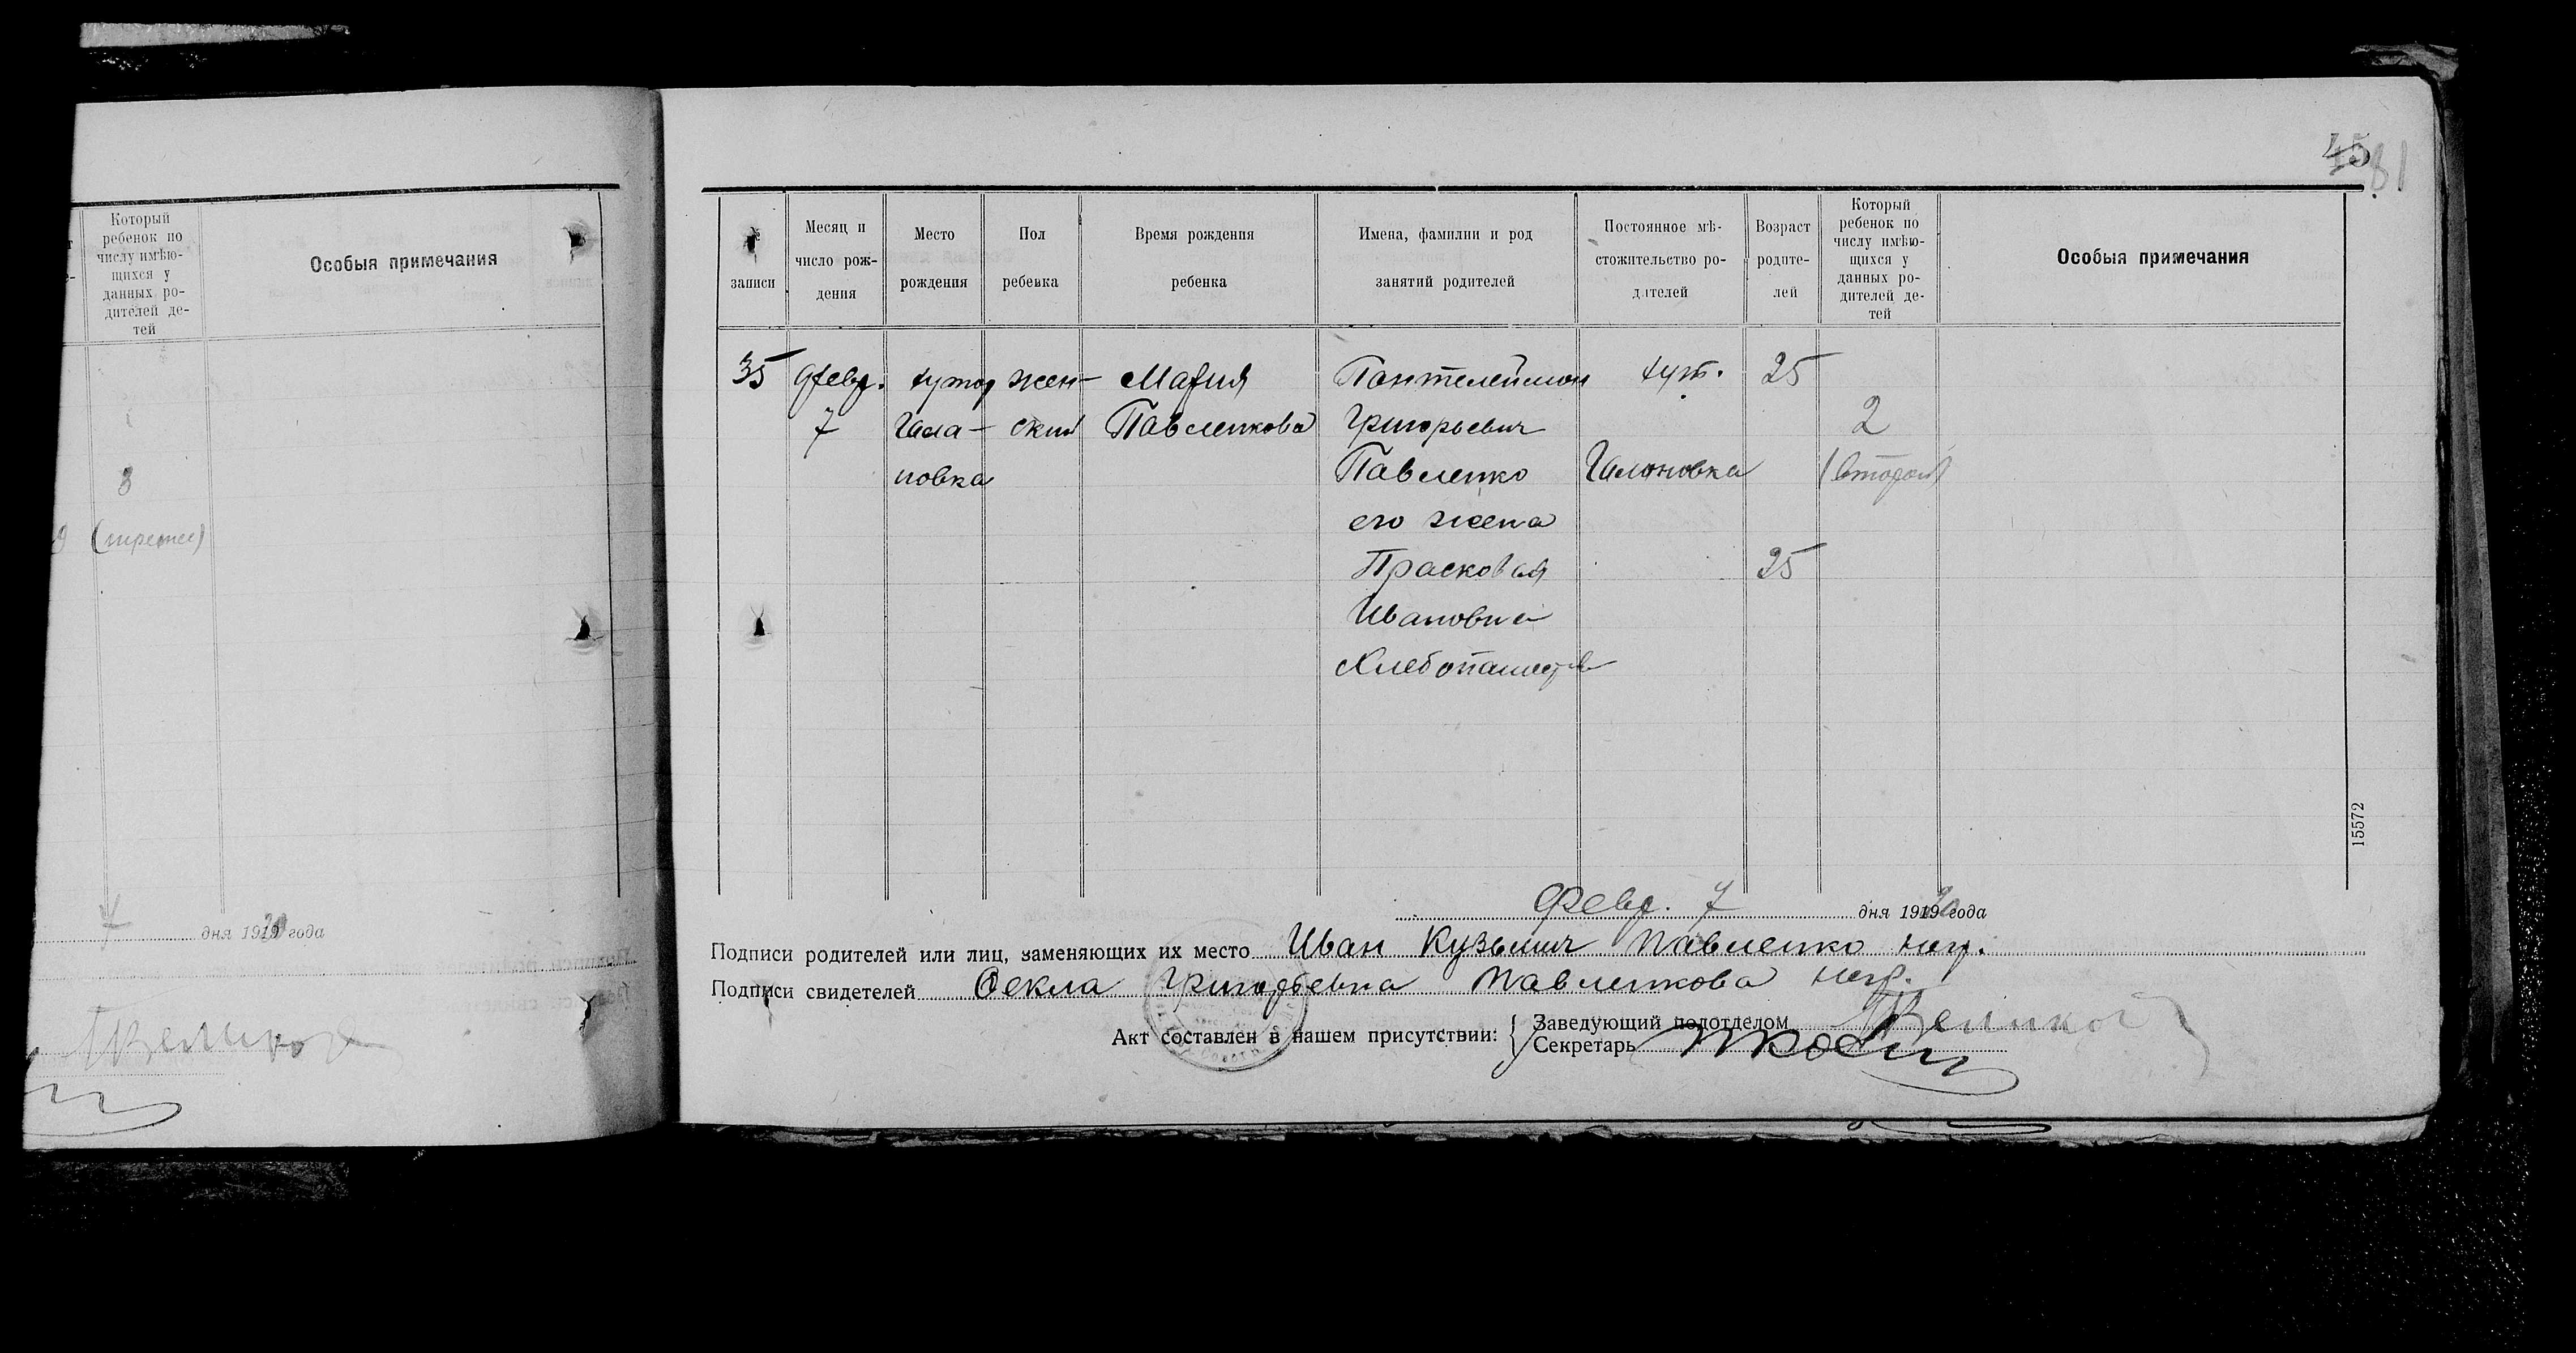 Который
ребенок по
числу имѣю-
щихся у
данных ро-
дителей де-
тей
Особыя примечания
3
(третее)
7
дня 1919 года
45
81
№
записи
Месяц и
число рож-
дения
Место
рождения
Пол
ребенка
Время рождения
ребенка
Имена, фамилии и род
занятий родителей
Постоянное мѣ-
стожительство ро-
дителей
Возраст
родите-
лей
Который
ребенок по
числу имѣю-
щихся у
данных ро-
дителей де-
тей
Особыя примечания
35 февр. хутор жен- Мария Пантелеймон хут. 25
7 Гала- ский Павленкова Григорьевич 2
новка Павленко Галановка (второй)
его жена
Прасковая 25
Ивановна
Хлебопашеств
15572
Февр. 7 дня 1919 года
Подписи родителей или лиц, заменяющих их место Иван Кузьмич Павленко негр.
Подписи свидетелей Фекла Григорьевна Павленкова негр.
Акт составлен в нашем присутствии:
Заведующий подотделом
Секретарь